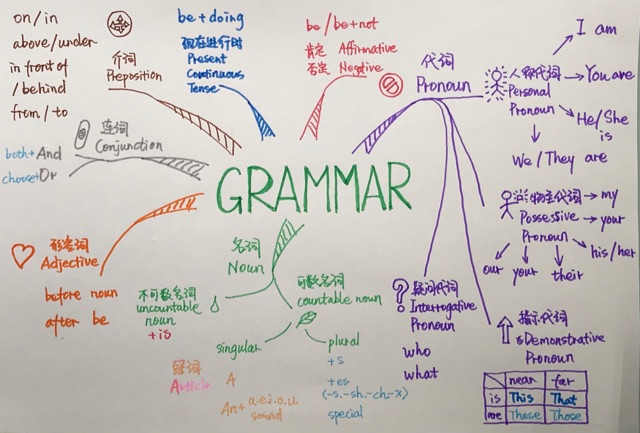 on/in
above/under
in front of
/behind
from/to
介词
Preposition
be+doing
现在进行时
Present
Continuous
Tense
be/be+not
肯定 Affirmative
否定 Negtive
代词
Pronoun
人称代词
Personal
Pronoun
I am
You are
He/She
is
We/They are
连词
Conjunction
both+And
choose+Or
GRAMMAR
物主代词
Possessive
Pronoun
my
your
his/her
our
your
their
形容词
Adjective
before noun
after be
名词
Noun
不可数名词
uncountable
noun
+is
可数名词
countable noun
singular
plural
+s
+es
(-s.-sh.-ch.-x)
special
冠词
Article
A
An+a.e.i.o.u
sound
疑问代词
Interrogative
Pronoun
who
what
指示代词
Demonstrative
Pronoun
near far
is This That
are These Those